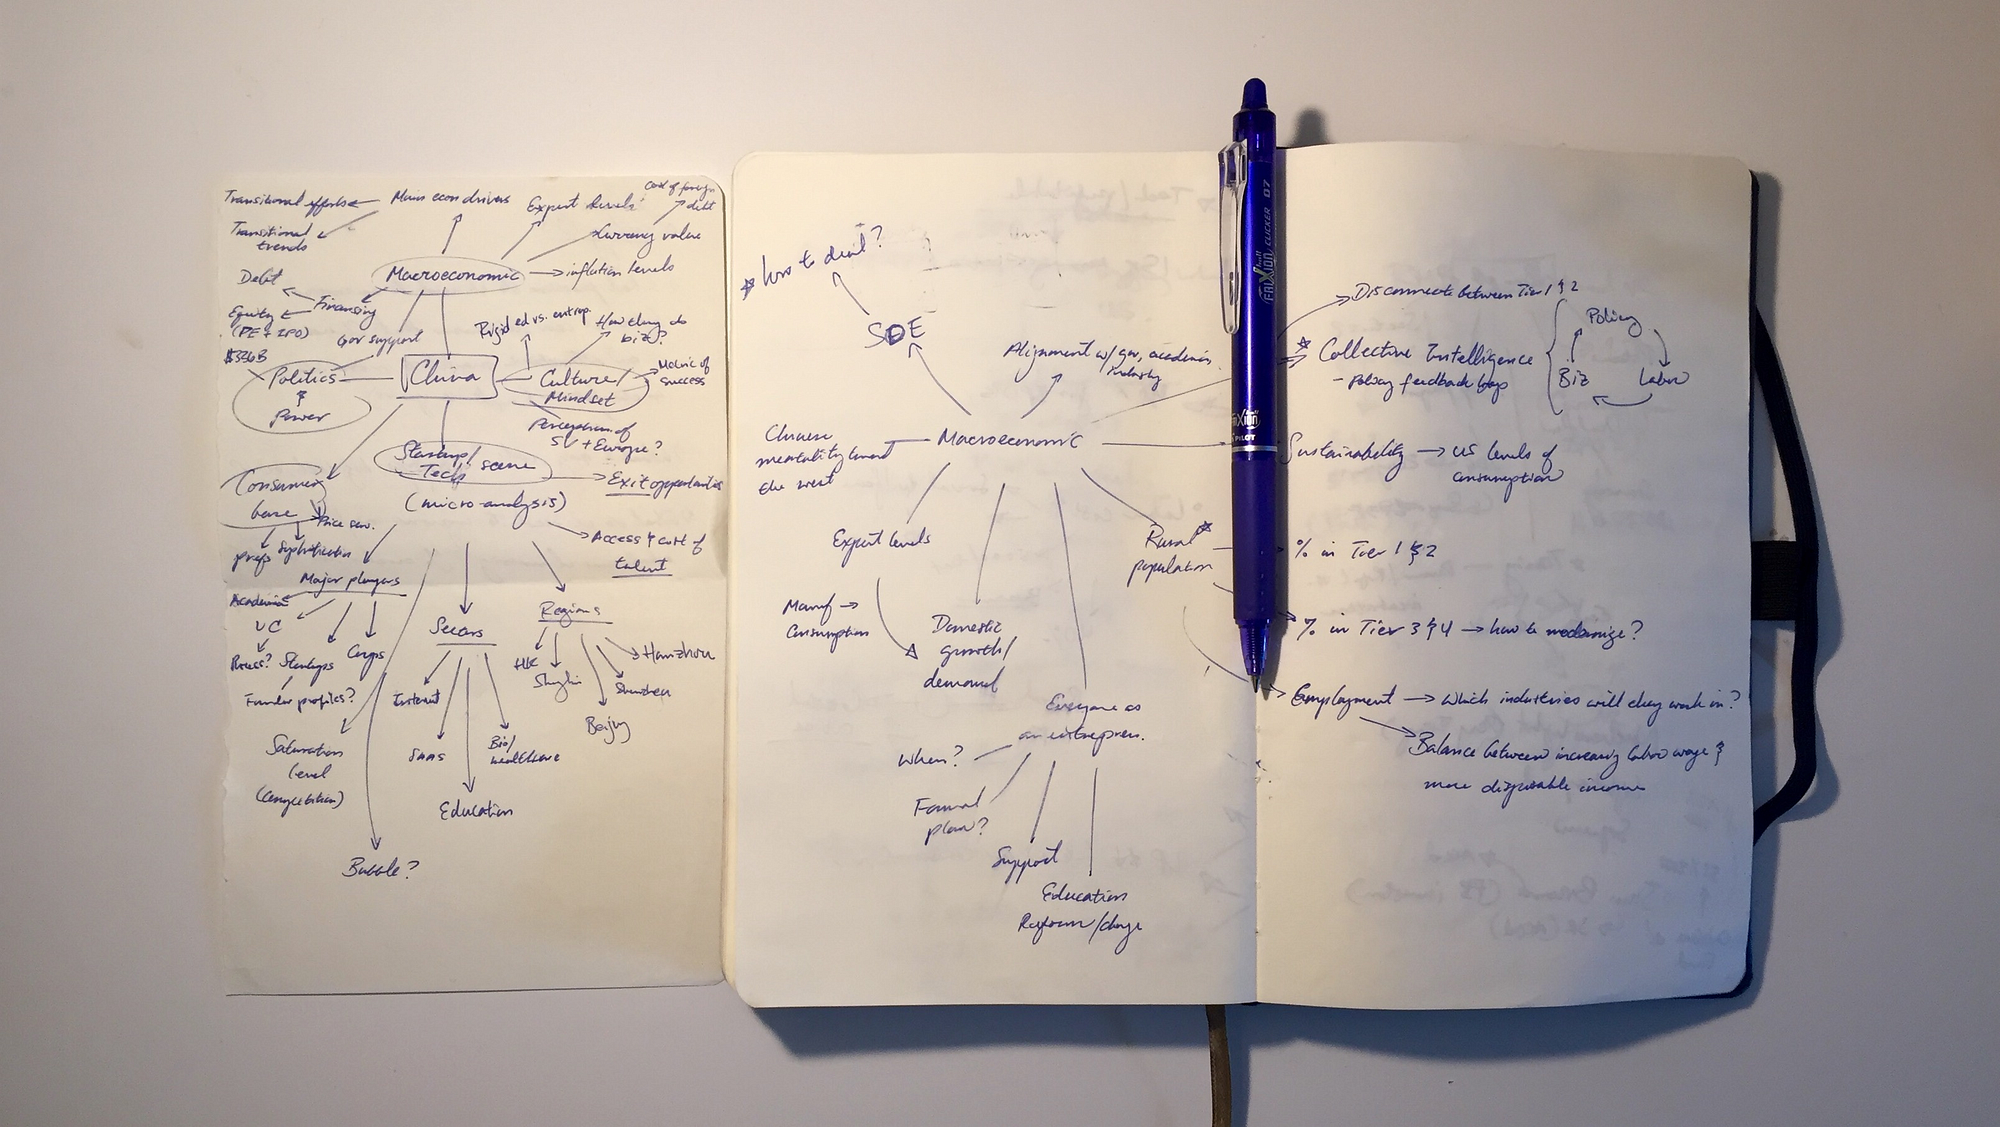 Transitional efforts
Main econ drivers
Export levels
Cost of foreign
debt
Transitional
trends
Currency value
Macroeconomic
inflation levels
Debt
Financing
Equity
(PE + IPO)
$336B
Gov support
Rigid ed vs. entrep.
How they do
biz?
Politics
&
Power
China
Culture/
Mindset
Metric of
success
Perception of
SV + Europe?
Startup/
Tech scene
(micro-analysis)
Exit opportunities
Consumer
base
Price sen.
prefs
Sophistication
Access & cost of
talent
Major players
Academia
VC
Startups
Corps
Founder profiles?
Regions
HK
Beijing
Shenzhen
Sectors
Internet
SaaS
Bio/
healthcare
Education
Saturation
level
(competition)
Bubble?
how to deal?
SOE
Alignment w/ gov, academia,
industry
Macroeconomic
Chinese
mentality
the west
Export levels
Manuf →
Consumption
Domestic
growth/
demand
Rural
population
Everyone as
an entrepren.
When?
Formal
plan?
Support
Education
Reform/change
FRIXION CLICKER 07
FRIXION
PILOT
Disconnect between Tier 1 & 2
Collective Intelligence
- policy feedback loops
Policy
Biz
Labor
Sustainability → US levels of
consumption
% in Tier 1 & 2
% in Tier 3 & 4 → how to modernize?
Employment → which industries will they work in?
Balance between increasing labor wage &
more disposable income